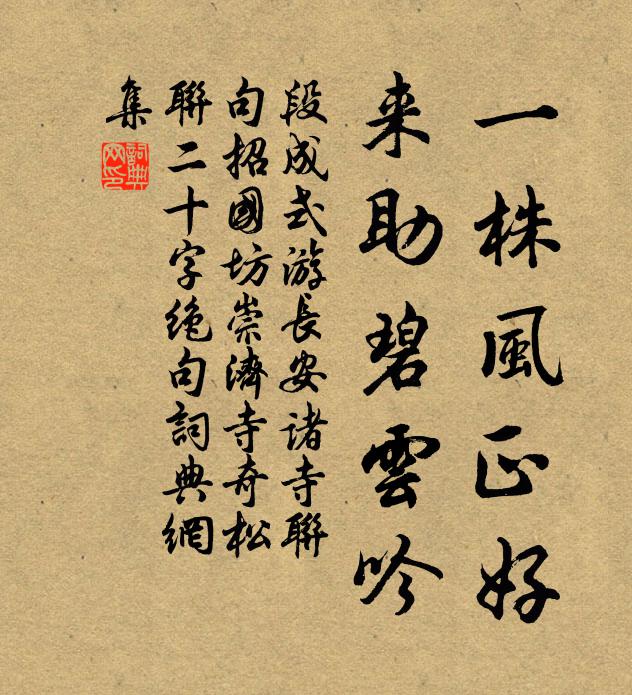 一株風正好
来助碧雲吟
段成式游長安諸寺聯
句招國坊崇濟寺奇松
聯二十字绝句詞典網
集
詞典網印